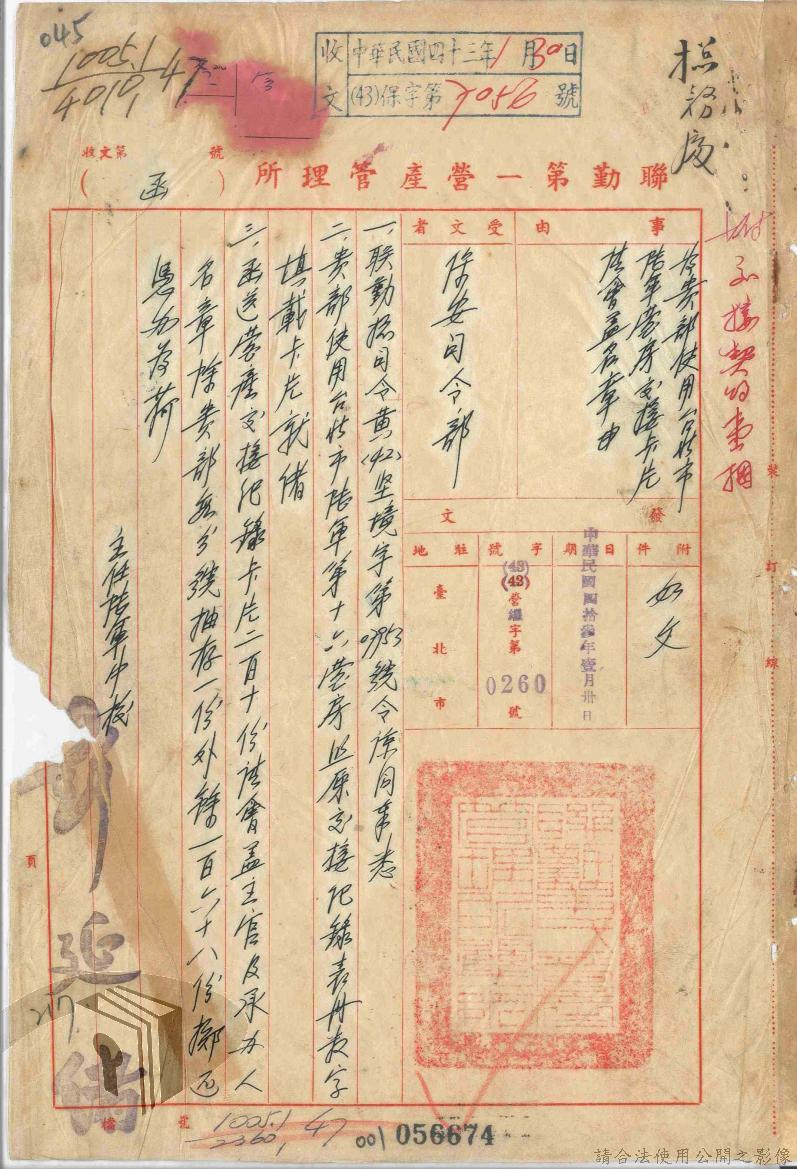 045
1005.1
4010.1
47
收文
中華民國四十三年1月30日
(43)保字第7056號
總務處
收文第 號
聯勤第一營產管理所
(函)
附不接契約書捆
事由
為貴部使用台北市
陸軍營房交接卡片
請會蓋名章由
受文者
保安司令部
發文
附件
如文
日期
中華民國四拾叁年壹月卅日
字號
(43)
(42)營繼字第0260號
駐地
臺北市
一、聯勤總司令黃(42)坚境字第0953號令諒同奉悉
二、貴部使用台北市陸軍第十六營房與原交接記錄表冊表字
填載卡片就緒
三、函送營產交接記錄卡片二百十份請會蓋主官及承办人
名章除貴部每分號抽存一份外餘一百六十八份擲还
憑办為荷
主任陸軍中校
延緒
217
裝
訂
線
頁
檔 號
1005.1
2360.1
47
001
056674
請合法使用公開之影像